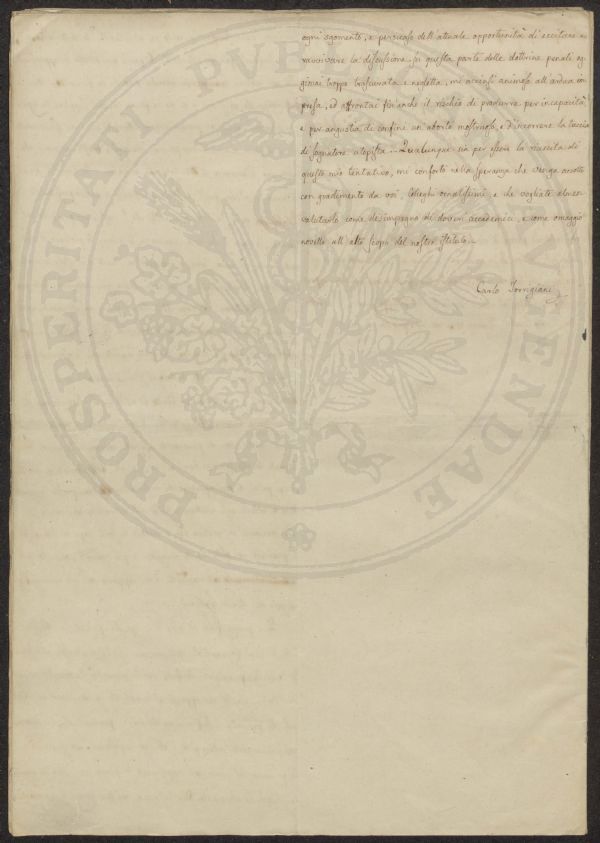 ogni sgomento, e persuaso dell'attuale opportunità di eccitare e
ravvivare la discussione su questa parte delle dottrine penali og
gimai troppo trascurata e negletta, mi accinsi animoso all'ardua im
presa, ed affrontai fin anche il rischio di produrre per incapacità,
e per angustia di confine un aborto mostruoso, e d'incorrere la taccia
di sognatore utopista. Qualunque sia per essere la riuscita di
questo mio tentativo, mi conforto nella speranza che venga accolto
con gradimento da voi, Colleghi ornatissimi, e che vogliate almeno
valutarlo come disimpegno di doveri accademici, e come omaggio
novello all'alto scopo del nostro Istituto.
Carlo Torrigiani
PROSPERITATI PVBLICAE AVGENDAE